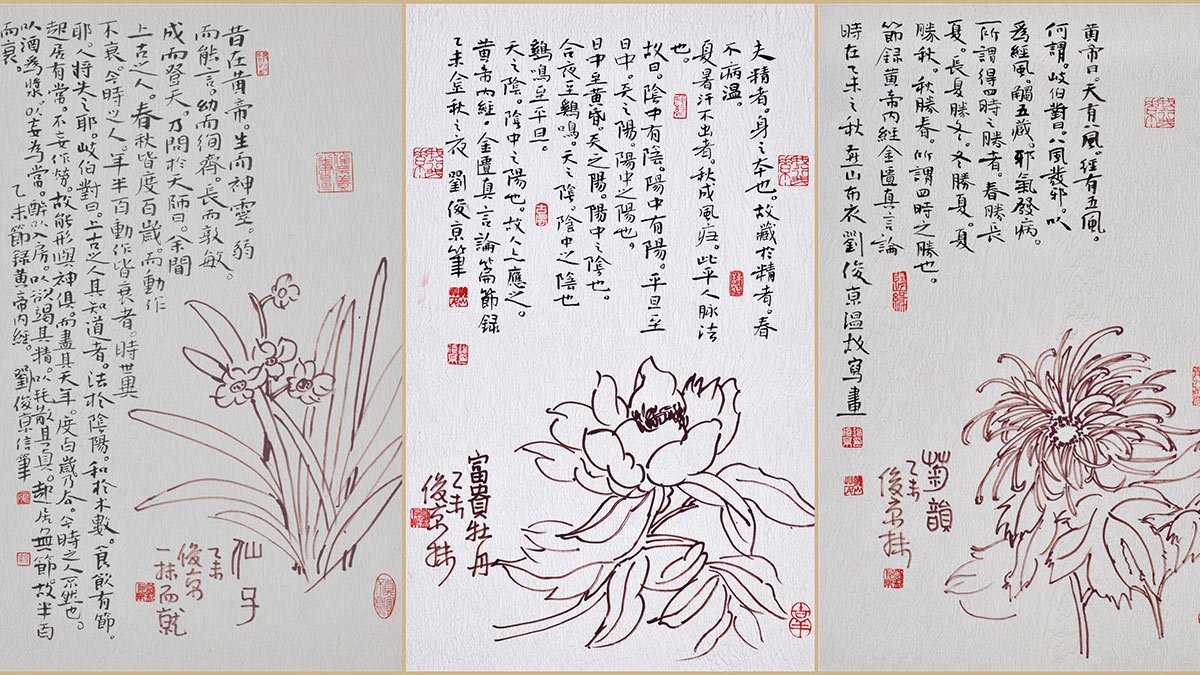 昔在黄帝。生而神靈。弱
而能言。幼而徇齊。長而敦敏
成而登天。乃問於天師曰。余聞
上古之人。春秋皆度百歲。而動作
不衰。今時之人。年半百動作皆衰者。時世異
耶。人將失之耶。岐伯對曰。上古之人其知道者。法於陰陽。和於术數。食飲有節。
起居有常。不妄作勞。故能形與神俱。而盡其天年。度百歲乃去。今時之人不然也。
以酒為漿。以妄為常。醉以入房。以欲竭其精。以耗散其真。起居無節。故半百
而衰。
乙未節録黄帝内經。劉俊京信筆
仙子
乙未
俊京
一抹而就
夫精者。身之本也。故藏於精者。春
不病温。
夏暑汗不出者。秋成風疟。此平人脈法
也。
故曰。陰中有陰。陽中有陽。平旦至
日中。天之陽。陽中之陽也。
日中至黄昏。天之陽。陽中之陰也。
合夜至鷄鳴。天之陰。陰中之陰也
鷄鳴至平旦。
天之陰。陰中之陽也。故人上應之。
黄帝内經。金匱真言論篇節録
乙未金秋之夜 劉俊京筆
富貴牡丹
乙未
俊京抹
黄帝曰。天有八風。經有五風。
何謂。岐伯對曰。八風發邪。以
爲經風。觸五藏。邪氣發病。
所謂得四時之勝者。春勝長
夏。長夏勝冬。冬勝夏。夏
勝秋。秋勝春。所謂四時之勝也。
節録黄帝内經金匱真言論
時在乙未之秋 燕山布衣劉俊京温故寫畫
菊韻
乙未
俊京抹